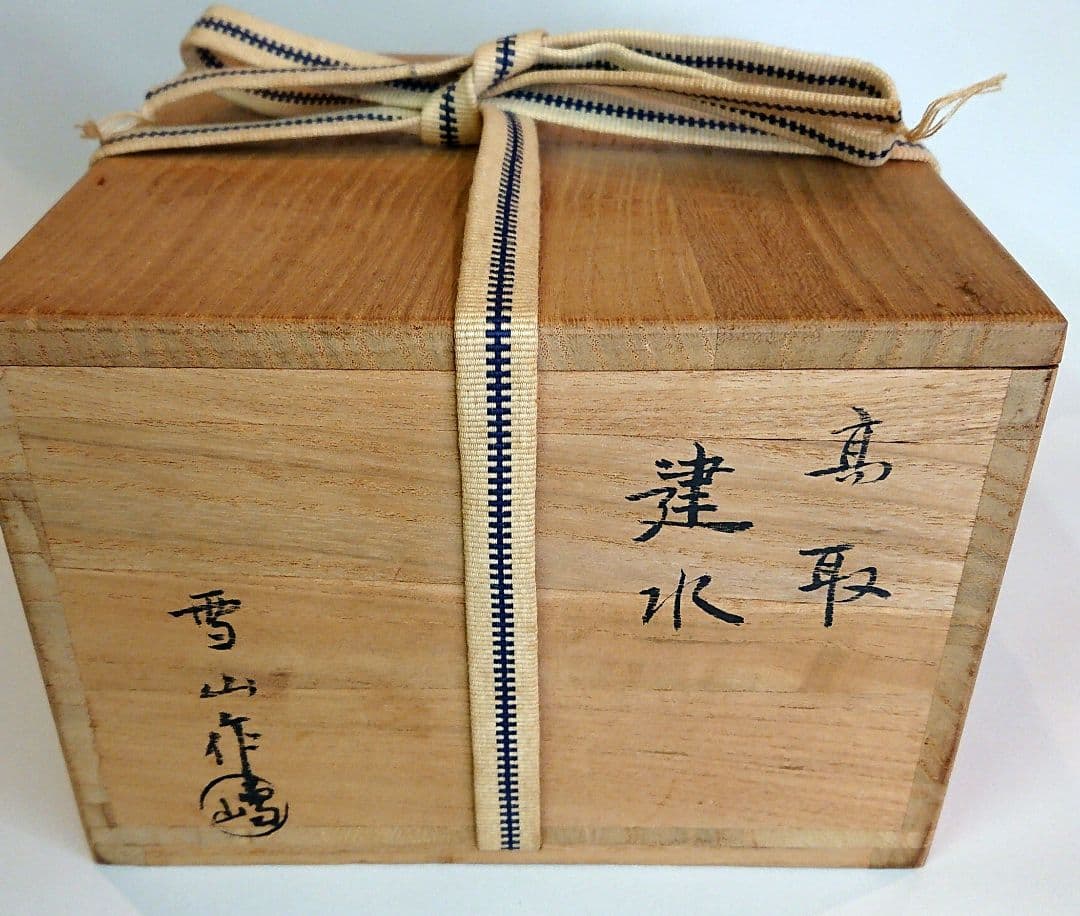 高取
建水
雪山作